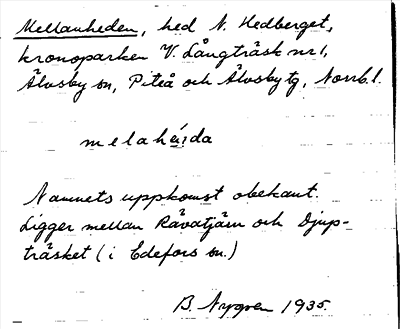 Mellanheden, hed N. Hedberget,
kronoparken V. Långträsk nr 1,
Älvsby sn, Piteå och Älvsby tg, Norrb. l.
melahéi̯da
Namnets uppkomst obekant.
Ligger mellan Råvatjärn och Djup-
träsket (i Edefors sn.)
B. Nygren 1935.